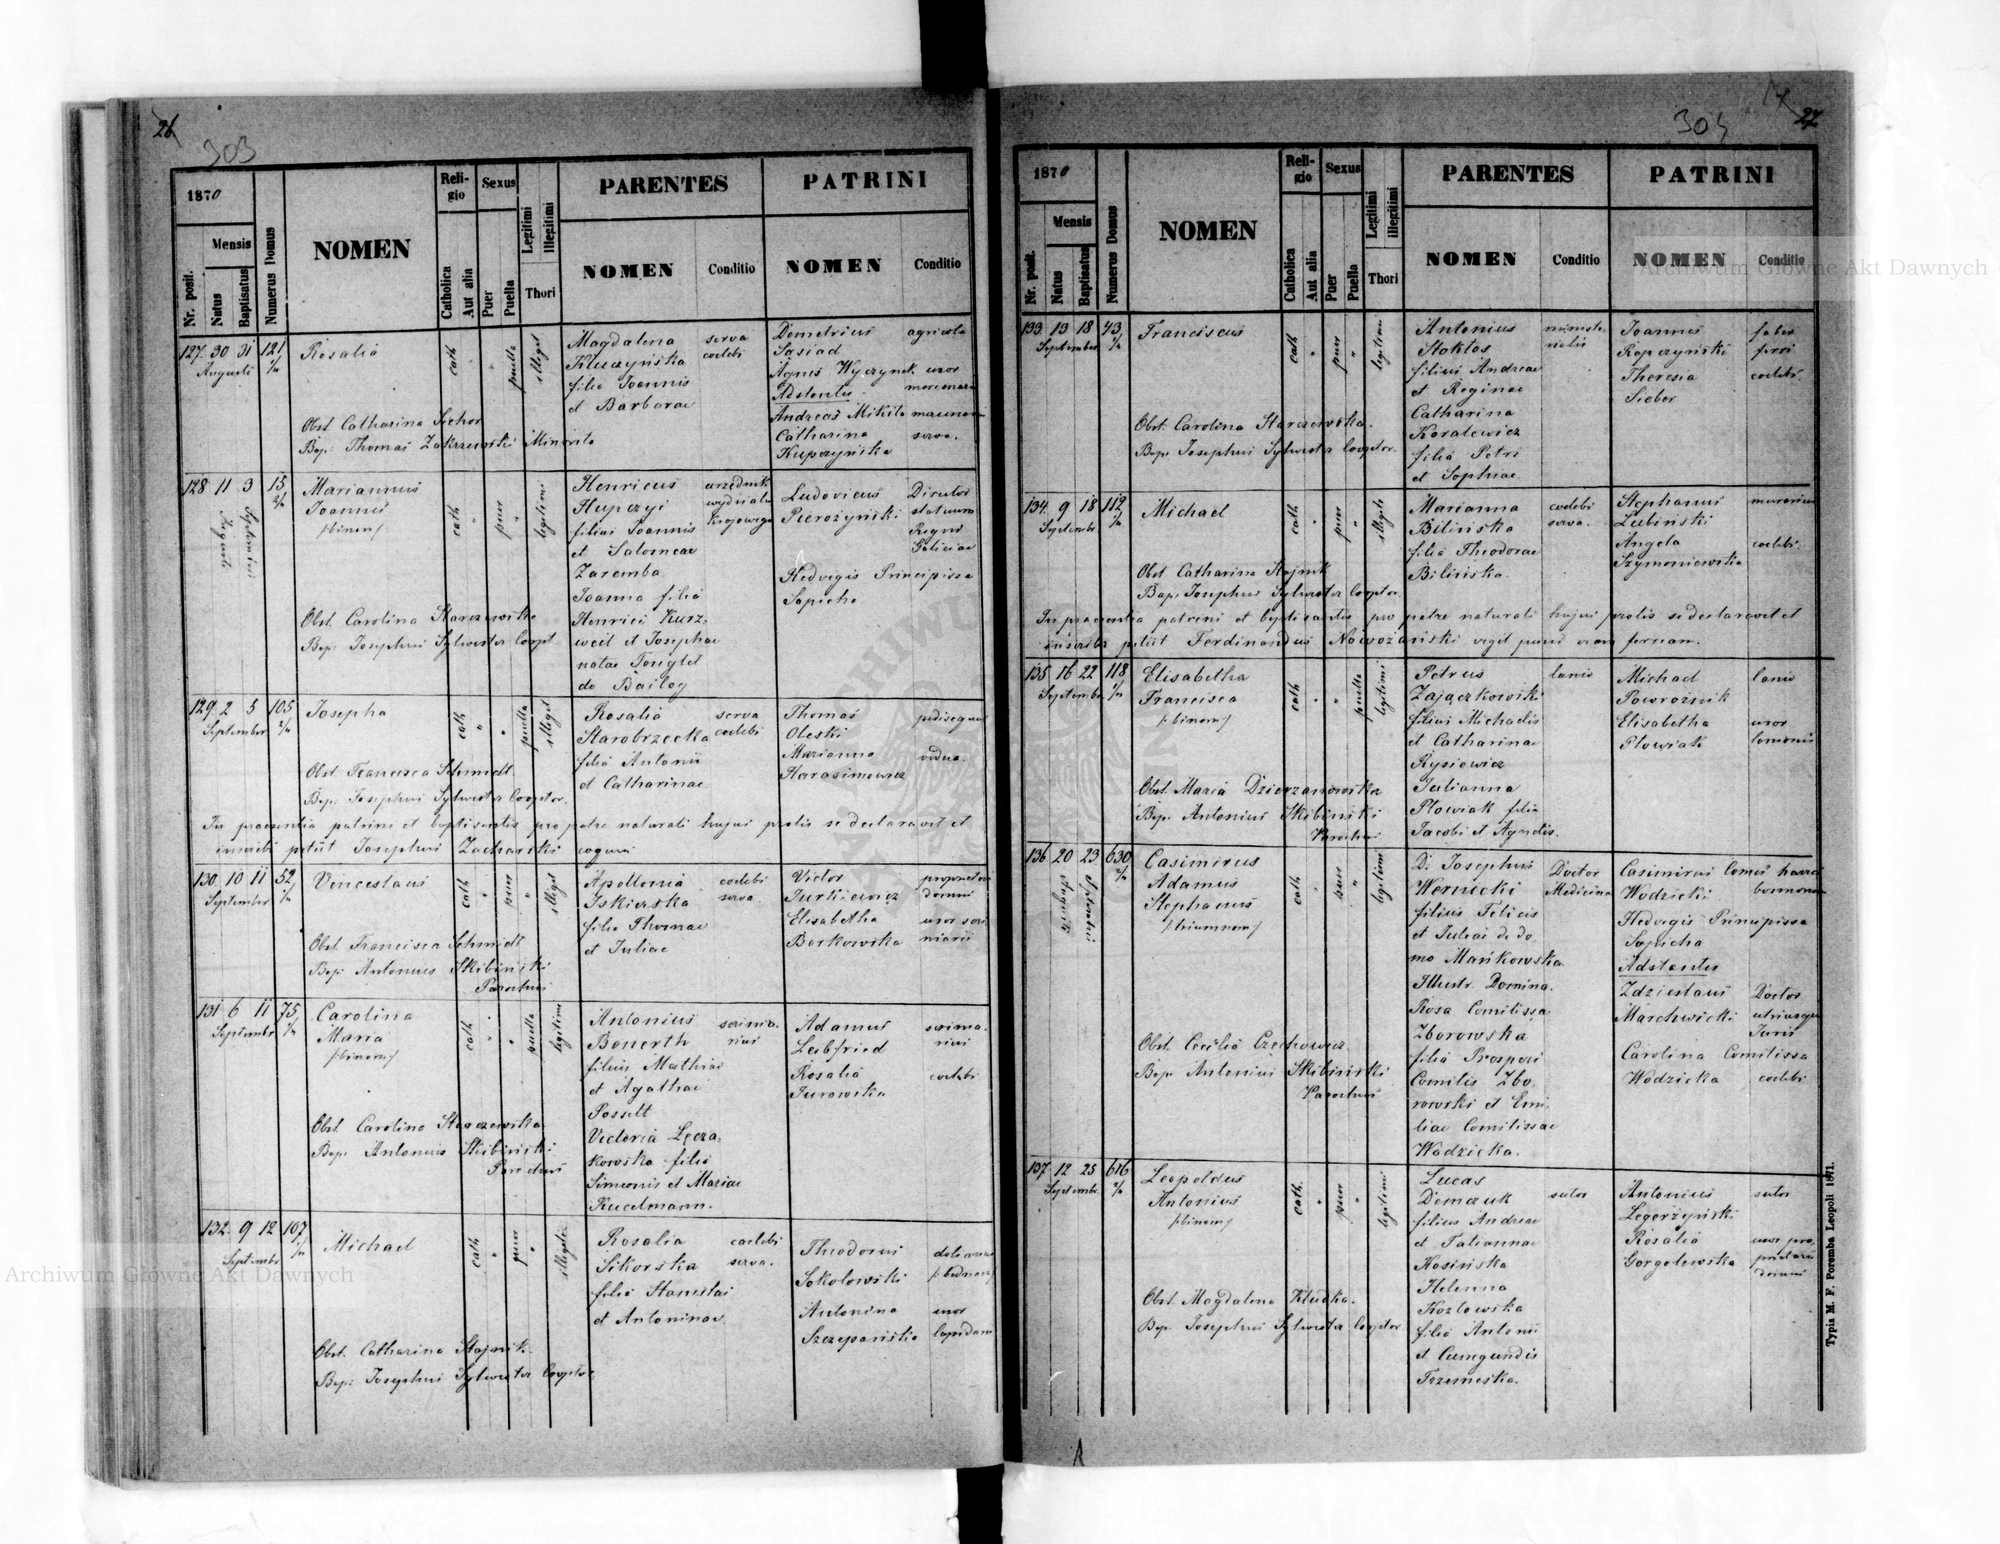 26
303
1870
Mensis
Nr. posit.
Natus
Baptisatus
Numerus Domus
NOMEN
Religio
Catholica
Aut alia
Sexus
Puer
Puella
Legitimi
illegitimi
Thori
PARENTES
NOMEN
Conditio
PATRINI
NOMEN
Conditio
127 30 31 121
Augusti
Rosalia
cath
puella
illegit
Magdalena
Kluczyńska
filia Joannis
et Barbarae
serva
coelebs
Demetrius
Sąsiad
Agnes Wyczynek
Adstantes
Andreas Mikita
Catharina
Kupczyńska
agricola
uxor
serva.
Obst. Catharina Sichor
Bap: Thomas Zakrzewski Minorita
128 11 3 15
Augusti
Septembris
Mariannus
Joannes
/:binom:/
cath
puer
legitimi
Henricus
Hupczyi
filius Joannis
et Salomeae
Zaremba
Joanna filia
Henrici Kurz-
weil et Josephae
natae Tonglet
de Bailog
urzędnik
wydziału
Krajowego
Ludovicus
Pierożyński
Hedvigis Principissa
Sapieha
Director
Regni
Galiciae
Obst. Carolina Starczewska
Bap: Josephus Sylwester Coopt.
129 2 5 105
September
Josepha
cath
puella
illegit
Rosalia
Starobrzecka
filia Antonii
et Catharinae
serva
coelebs
Thomas
Oleski
Marianna
Harasimowicz
pedisequus
vidua
Obst. Francisca Schmidt
Bap: Josephus Sylwester Cooptor.
In praesentia patrini et baptisantis pro patre naturali hujus prolis se declaravit et
inscribi petiit Josephus Zacharski
130 10 11 52
September
Venceslaus
cath
puer
illegit
Apollonia
Iskierska
filia Thomae
et Juliae
coelebs
serva
Victor
Jurkiewicz
Elisabetha
Borkowska
proprietar
domus
Obst. Francisca Schmidt
Bap: Antonius Skibiński
Parochus
131 6 11 75
Septembr.
Carolina
Maria
/:binom:/
cath
puella
legitimi
Antonius
Bonerth
filius Mathiae
et Agathae
Posselt
Victoria Łęcza-
kowska filia
Simeonis et Mariae
Kucelmann.
Adamus
Leibfried
Rosalia
Jurowska
coelebs
Obst. Carolina Starczewska
Bap: Antonius Skibiński
Parochus
132 9 12 107
Septembr.
Michael
cath
puer
illegit
Rosalia
Sikorska
filia Stanislai
et Antoninae
coelebs
serva.
Theodorus
Sokołowski
Antonina
Szczepańska
uxor
Obst. Catharina Stajnik.
Bap: Josephus Sylwester Cooptor
27
304
1870
Mensis
Nr. posit.
Natus
Baptisatus
Numerus Domus
NOMEN
Religio
Catholica
Aut alia
Sexus
Puer
Puella
Legitimi
illegitimi
Thori
PARENTES
NOMEN
Conditio
PATRINI
NOMEN
Conditio
133 13 18 43
September
Franciscus
cath
puer
legitimi
Antonius
Stoktos
filius Andreae
et Reginae
Catharina
Koralewicz
filia Petri
et Sophiae
Joannes
Kopczyński
Theresia
Sieber
faber
ferri
coelebs
Obst. Carolina Starczewska.
Bap: Josephus Sylwester Cooptor.
134 9 18 112
Septembr
Michael
cath
puer
illegit
Marianna
Bilińska
filia Theodorae
Bilińska.
coelebs
serva.
Stephanus
Lubiński
Angela
Szymoniewska
murarius
coelebs.
Obst. Catharina Stajnik
Bap: Josephus Sylwester Cooptor.
In praesentia patrini et baptisantis pro patre naturali hujus prolis se declaravit et
inscribi petiit Ferdinandus Nowożański
135 16 22 118
Septembr.
Elisabetha
Francisca
/:binom:/
cath
puella
legitimi
Petrus
Zajączkowski
filius Michaelis
et Catharinae
Rysiewicz
Julianna
Płowiak filia
Jacobi et Agnetis.
lanio
Michael
Powroźnik
Elisabetha
Płowiak
lanio
uxor
lanionis
Obst. Maria Dzierzanowska
Bap. Antonius Skibiński
Parochus
136 20 23 630
Augusti
Septembris
Casimirus
Adamus
Stephanus
/:trinomin:/
cath
puer
legitimi
D. Josephus
Wernicki
filius Felicis
et Juliae de do
mo Mańkowska
Illustr. Domina.
Rosa Comitissa
Zborowska
filia Prosperi
Comitis Zbo-
rowski et Emi-
liae Comitissae
Wodzicka.
Doctor
Medicinae
Casimirus Comes haeres
Wodzicki bonorum
Hedvigis Principissa
Sapieha
Adstantes
Zdzislaus
Marchwicki
Carolina Comitissa
Wodzicka
Doctor
utriusque
Juris
coelebs
Obst. Cecilia Czechowicz
Bap. Antonius Skibiński
Parochus
137 12 25 616
Septembr.
Leopoldus
Antonius
/:binom:/
cath.
puer
legitimi
Lucas
Demczuk
filius Andreae
et Tatiannae
Kosińska
Helenna
Kozłowska
filia Antonii
et Cunegundis
Trzemeska.
sutor
Antonius
Legorzyński
Rosalia
Gorgolewska
sutor
uxor pro-
prietarii
domus
Obst. Magdalena Kludka.
Bap. Josephus Sylwester Cooptor
Typis M. F. Poremba Leopoli 1871.
Archiwum Główne Akt Dawnych
Archiwum Główne Akt Dawnych